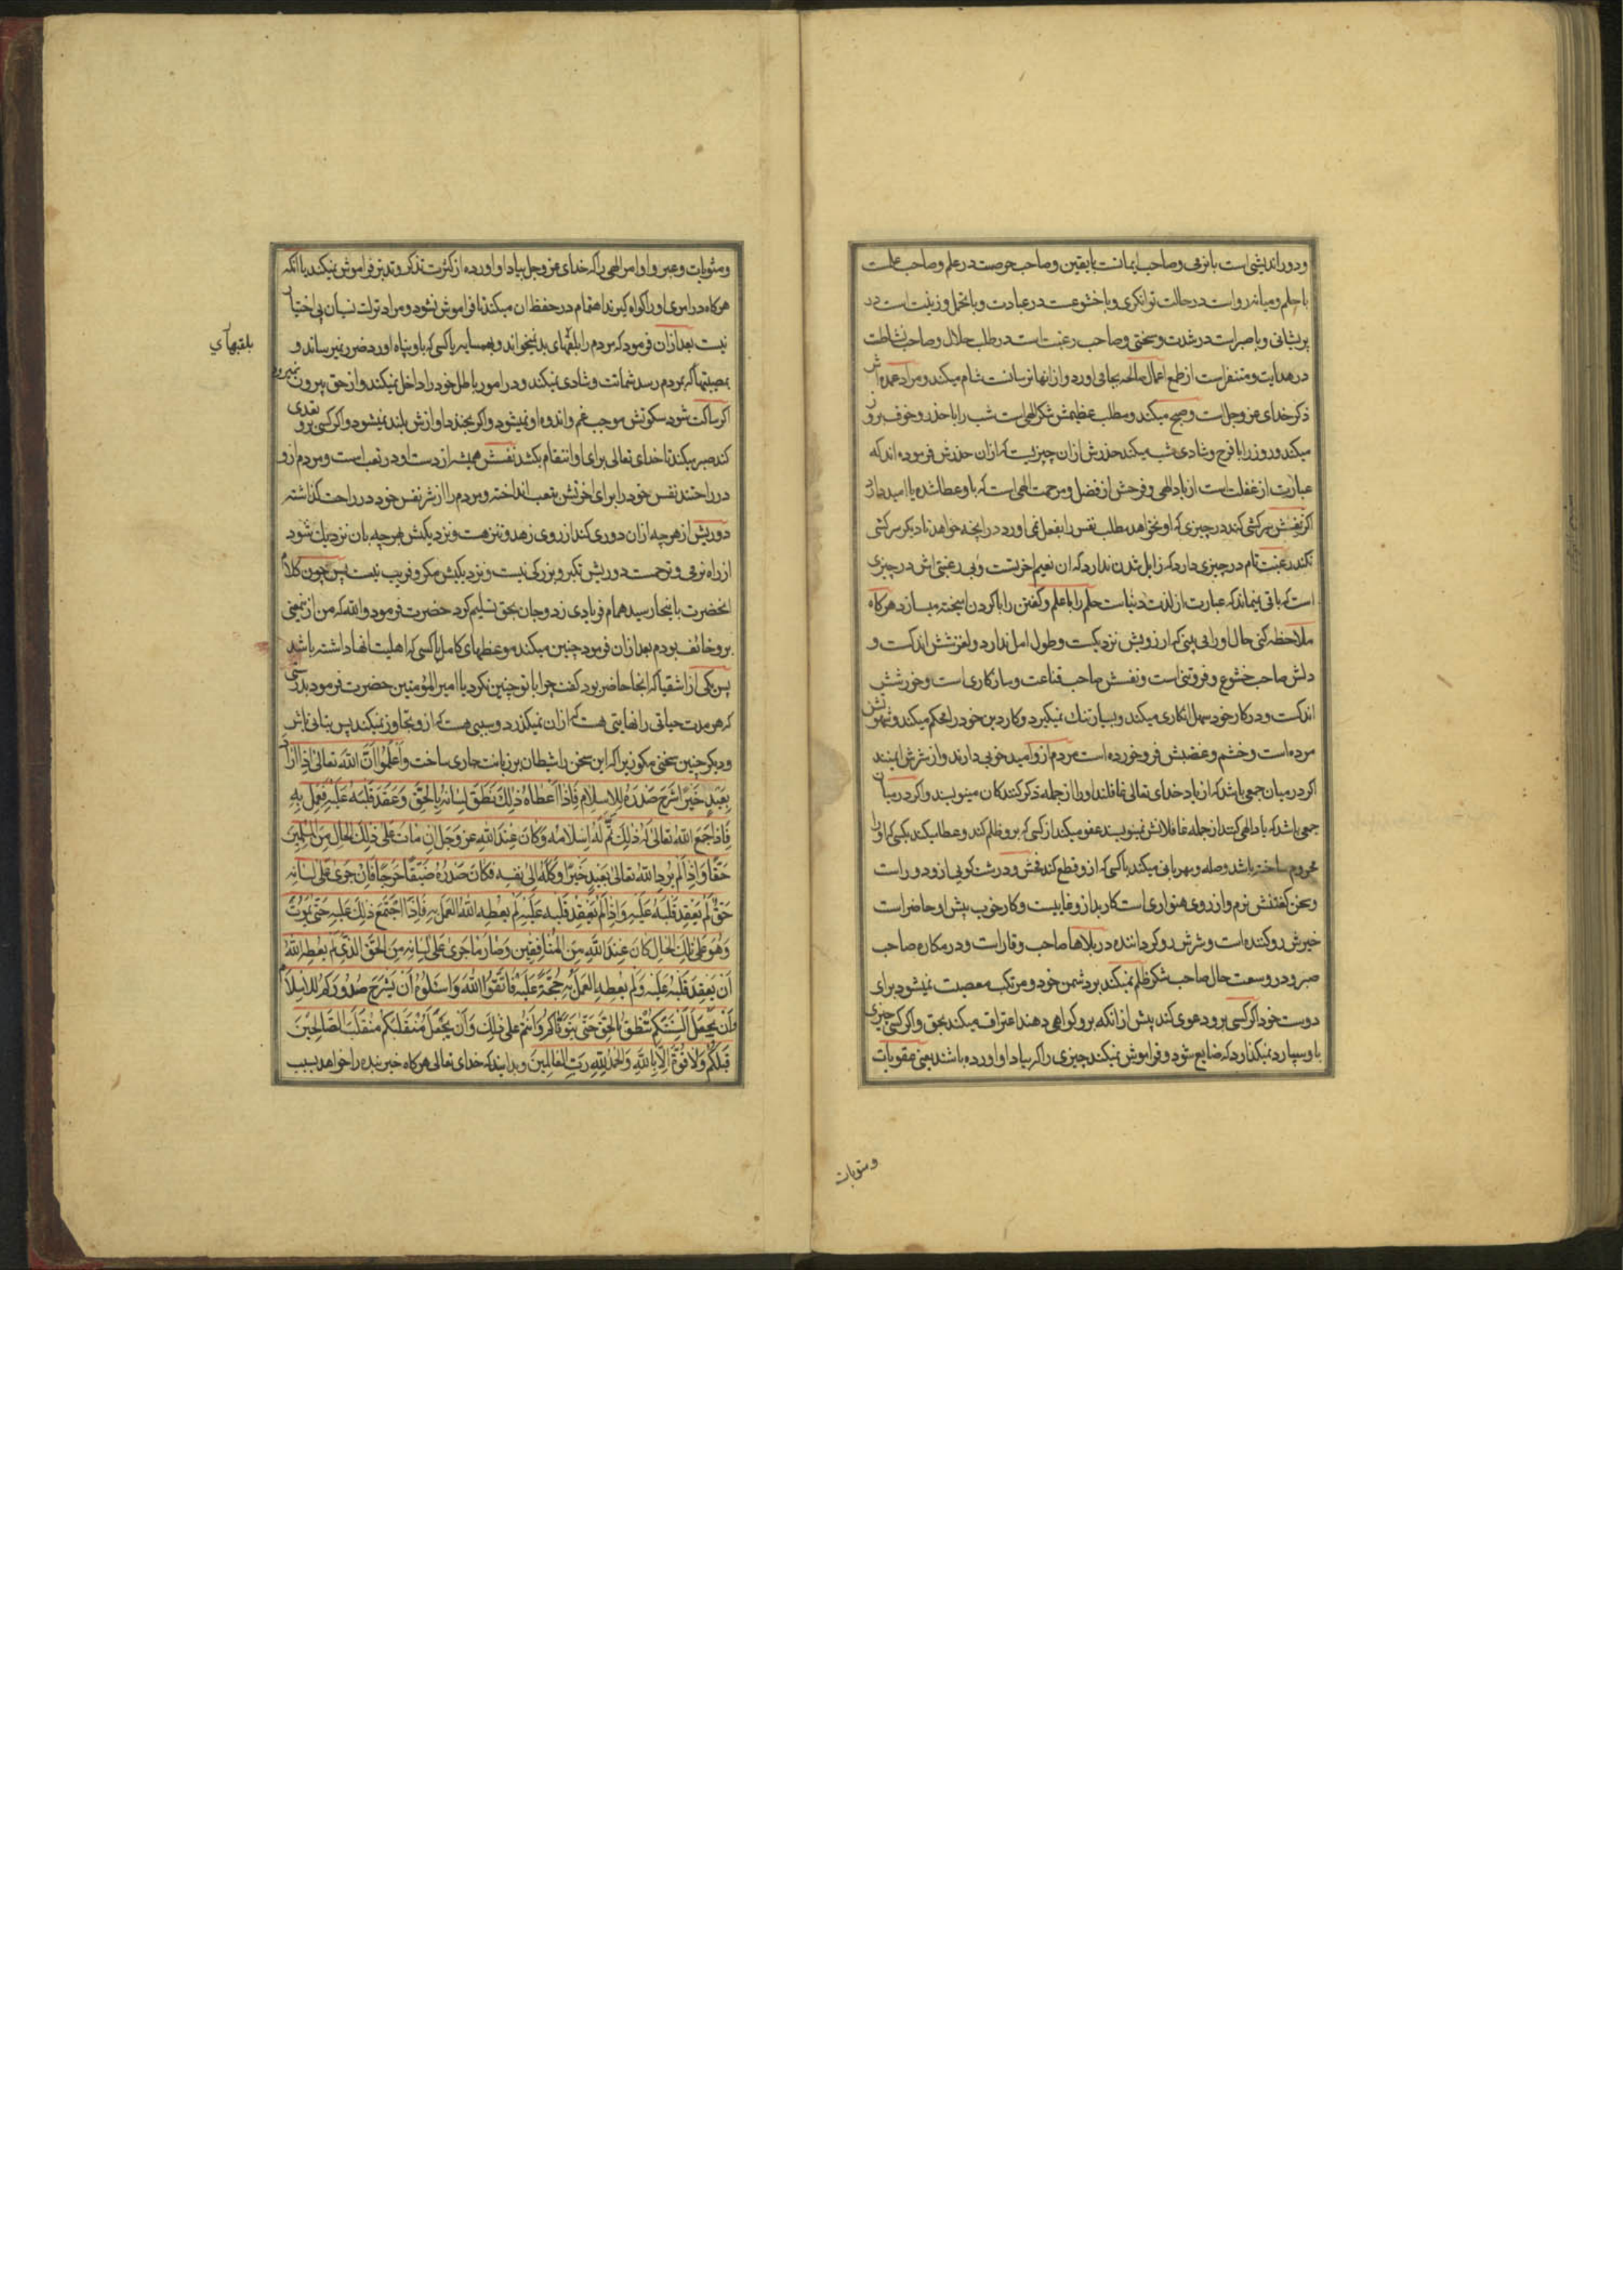 ودور اندیشی است با نرمی و صاحب ایمانست با یقین و صاحب حرصت در علم و صاحب علمست
با حلم و میانه رو است در حالت توانکری و با خشوعست در عبادت و با تحمل و زینت است در
پریشانی و با صبر است در شدت و سختی و صاحب رغبت است در طلب حلال و صاحب نشاطست
در هدایت و متنفر است از طمع اعمال صالحه بجا می اورد و از انها ترسانست شام میکند و مراد عمده اش
ذکر خدای عز و جل است و صبح میکند و مطلب عظیمش شکر الهی است شب را با حذر و خوف بروز
میکند و روز را با فرح و شادی شب میکند حذرش از ان چیزیست که از ان حذرش فرموده اند که
عبارت از غفلت است از یاد الهی و فرحش از فضل و مرحمت الهی است که باو عطا شده یا امید دارد
اکر نفسش سرکشی کند در چیزی که او نخواهد مطلب نفس را بفعل نمی اورد در انچه خواهد تا دیکر سرکشی
نکند رغبت تام در چیزی دارد که زایل شدن ندارد که ان نعیم اخرتست و بی رغبتی اش در چیزی
است که باقی نمیماند که عبارت از لذت دنیاست حلم را با علم و کفتن را با کردن امیخته میسازد هر کاه
ملاحظه کنی حال او را می بینی که ارزویش نزدیکست و طول امل ندارد و لغزشش اندکست و
دلش صاحب خشوع و فروتنی است و نفسش صاحب قناعت و سازکاری است و خورشش
اندکست و در کار خود سهل انکاری میکند و بسیار تنک نمیکیرد و کار دین خود را محکم میکند و شهوتش
مرده است و خشم و غضبش فرو خورده است مردم از وامید خوبی دارند و از شرش ایمنند
اکر در میان جمعی باشد که از یاد خدای تعالی غافلند او را از جمله ذکر کنندکان مینویسند و اکر در میان
جمعی باشد که یاد الهی کنند از جمله غافلانش نمینویسند عفو میکند از کسی که برو ظلم کند و عطا میکند بکسی که او را
محروم ساخته باشد و صله و مهربانی میکند با کسی که ازو قطع کند فحش و درشت کویی ازو دور است
و سخن کفتنش نرم و از روی همواری است کار بد ازو غایبست و کار خوب پیش او حاضر است
خیرش رو کننده است و شرش رو کرداننده در بلاها صاحب وقار است و در مکاره صاحب
صبر و در وسعت حال صاحب شکر ظلم نمیکند بر دشمن خود و مرتکب معصیت نمیشود برای
دوست خود اکر کسی برو دعوی کند پیش از انکه برو کواهی دهند اعتراف میکند بحق و اکر کسی چیزی
باو سپارد نمیکذارد که ضایع شود و فراموش نمیکند چیزی را که بیاد او اورده باشند یعنی عقوبات
ومثوبات
ومثوبات و عبر و اوامر الهی را که خدای عز و جل بیاد او اورده از کثرت تذکر و تدبر فراموش نمیکند یا انکه
هرکاه در امری او را کواه کیرند اهتمام در حفظ ان میکند تا فراموش نشود و مراد ترک نسیان بی اختیار
نیست بعد از ان فرمود که مردم را بلقبهای بد نمیخواند و بهمسایه یا کسی که باو پناه اورد ضرر نمیرساند و
بلقبهای
بمصیبتها که بمردم رسد شماتت و شادی نمیکند و در امور باطل خود را داخل نمیکند و از حق بیرون نمیرود
اکر ساکت شود سکوتش موجب غم و اندوه او نمیشود و اکر بخندد اوازش بلند نمیشود و اکر کسی برو تعدی
کند صبر میکند تا خدای تعالی برای او انتقام بکشد نفسش همیشه از دست او در تعب است و مردم ازو
در راحتند نفس خود را برای اخرتش بتعب انداخته و مردم را از شر نفس خود در راحت کذاشته
دوریش از هر چه از ان دوری کند از روی زهد و تنزهست و نزدیکیش بهر چه بان نزدیک شود
از راه نرمی و ترحمست دوریش تکبر و بزرکی نیست و نزدیکیش مکر و فریب نیست پس چون کلام
انحضرت باینجا رسید همام فریادی زد و جان بحق تسلیم کرد حضرت فرمود والله که من از همین
برو خائف بودم بعد از ان فرمود چنین میکند موعظهای کامل با کسی که اهلیت انها داشته باشد
پس یکی از اشقیا که انجا حاضر بود کفت چرا با تو چنین نکرد یا امیر المؤمنین حضرت فرمود بدرستی
که هر مدت حیاتی را نهایتی هست که از ان نمیکذرد و سببی هست که ازو تجاوز نمیکند پس بتانی باش
و دیکر چنین سخنی مکو زیرا که این سخن را شیطان بر زبانت جاری ساخت وَاعْلَمُوا اَنَّ اللّٰهَ تَعَالٰی اِذَا اَرَادَ
بِعَبْدٍ خَیْرًا شَرَحَ صَدْرَهُ لِلْاِسْلَامِ فَاِذَا اَعْطَاهُ ذٰلِکَ نَطَقَ لِسَانُهُ بِالْحَقِّ وَعَقَدَ قَلْبَهُ عَلَیْهِ فَعَمِلَ بِهِ
فَاِذَا جَمَعَ اللّٰهُ تَعَالٰی لَهُ ذٰلِکَ تَمَّ لَهُ اِسْلَامُهُ وَکَانَ عِنْدَ اللّٰهِ عَزَّ وَجَلَّ اِنْ مَاتَ عَلٰی ذٰلِکَ الْحَالِ مِنَ الْمُسْلِمِینَ
حَقًّا وَاِذَا لَمْ یُرِدِ اللّٰهُ تَعَالٰی بِعَبْدٍ خَیْرًا وَکَلَهُ اِلٰی نَفْسِهِ فَکَانَ صَدْرُهُ ضَیِّقًا حَرَجًا فَاِنْ جَرٰی عَلٰی لِسَانِهِ
حَقٌّ لَمْ یَعْقِدْ قَلْبَهُ عَلَیْهِ وَاِذَا لَمْ یَعْقِدْ قَلْبَهُ عَلَیْهِ لَمْ یُعْطِهِ اللّٰهُ الْعَمَلَ بِهِ فَاِذَا اجْتَمَعَ ذٰلِکَ عَلَیْهِ حَتّٰی یَمُوتَ
وَهُوَ عَلٰی تِلْکَ الْحَالِ کَانَ عِنْدَ اللّٰهِ مِنَ الْمُنَافِقِینَ وَصَارَ مَا جَرٰی عَلٰی لِسَانِهِ مِنَ الْحَقِّ الَّذِی لَمْ یُعْطِهِ اللّٰهُ
اَنْ یَعْقِدَ قَلْبَهُ عَلَیْهِ وَلَمْ یُعْطِهِ الْعَمَلَ بِهِ حُجَّةً عَلَیْهِ فَاتَّقُوا اللّٰهَ وَاسْئَلُوهُ اَنْ یَشْرَحَ صُدُورَکُمْ لِلْاِسْلَامِ
وَاَنْ یَجْعَلَ اَلْسِنَتَکُمْ تَنْطِقُ بِالْحَقِّ حَتّٰی یَتَوَفَّاکُمْ وَاَنْتُمْ عَلٰی ذٰلِکَ وَاَنْ یَجْعَلَ مُنْقَلَبَکُمْ مُنْقَلَبَ الصَّالِحِینَ
قَبْلَکُمْ وَلَا قُوَّةَ اِلَّا بِاللّٰهِ وَالْحَمْدُ لِلّٰهِ رَبِّ الْعَالَمِینَ و بدانید که خدای تعالی هرکاه خیر بنده را خواهد بسبب